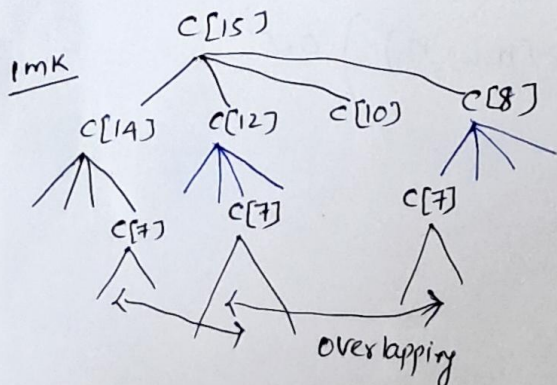 C[15]
1mk
C[14] C[12] C[10] C[8]
C[7] C[7] C[7]
overlapping